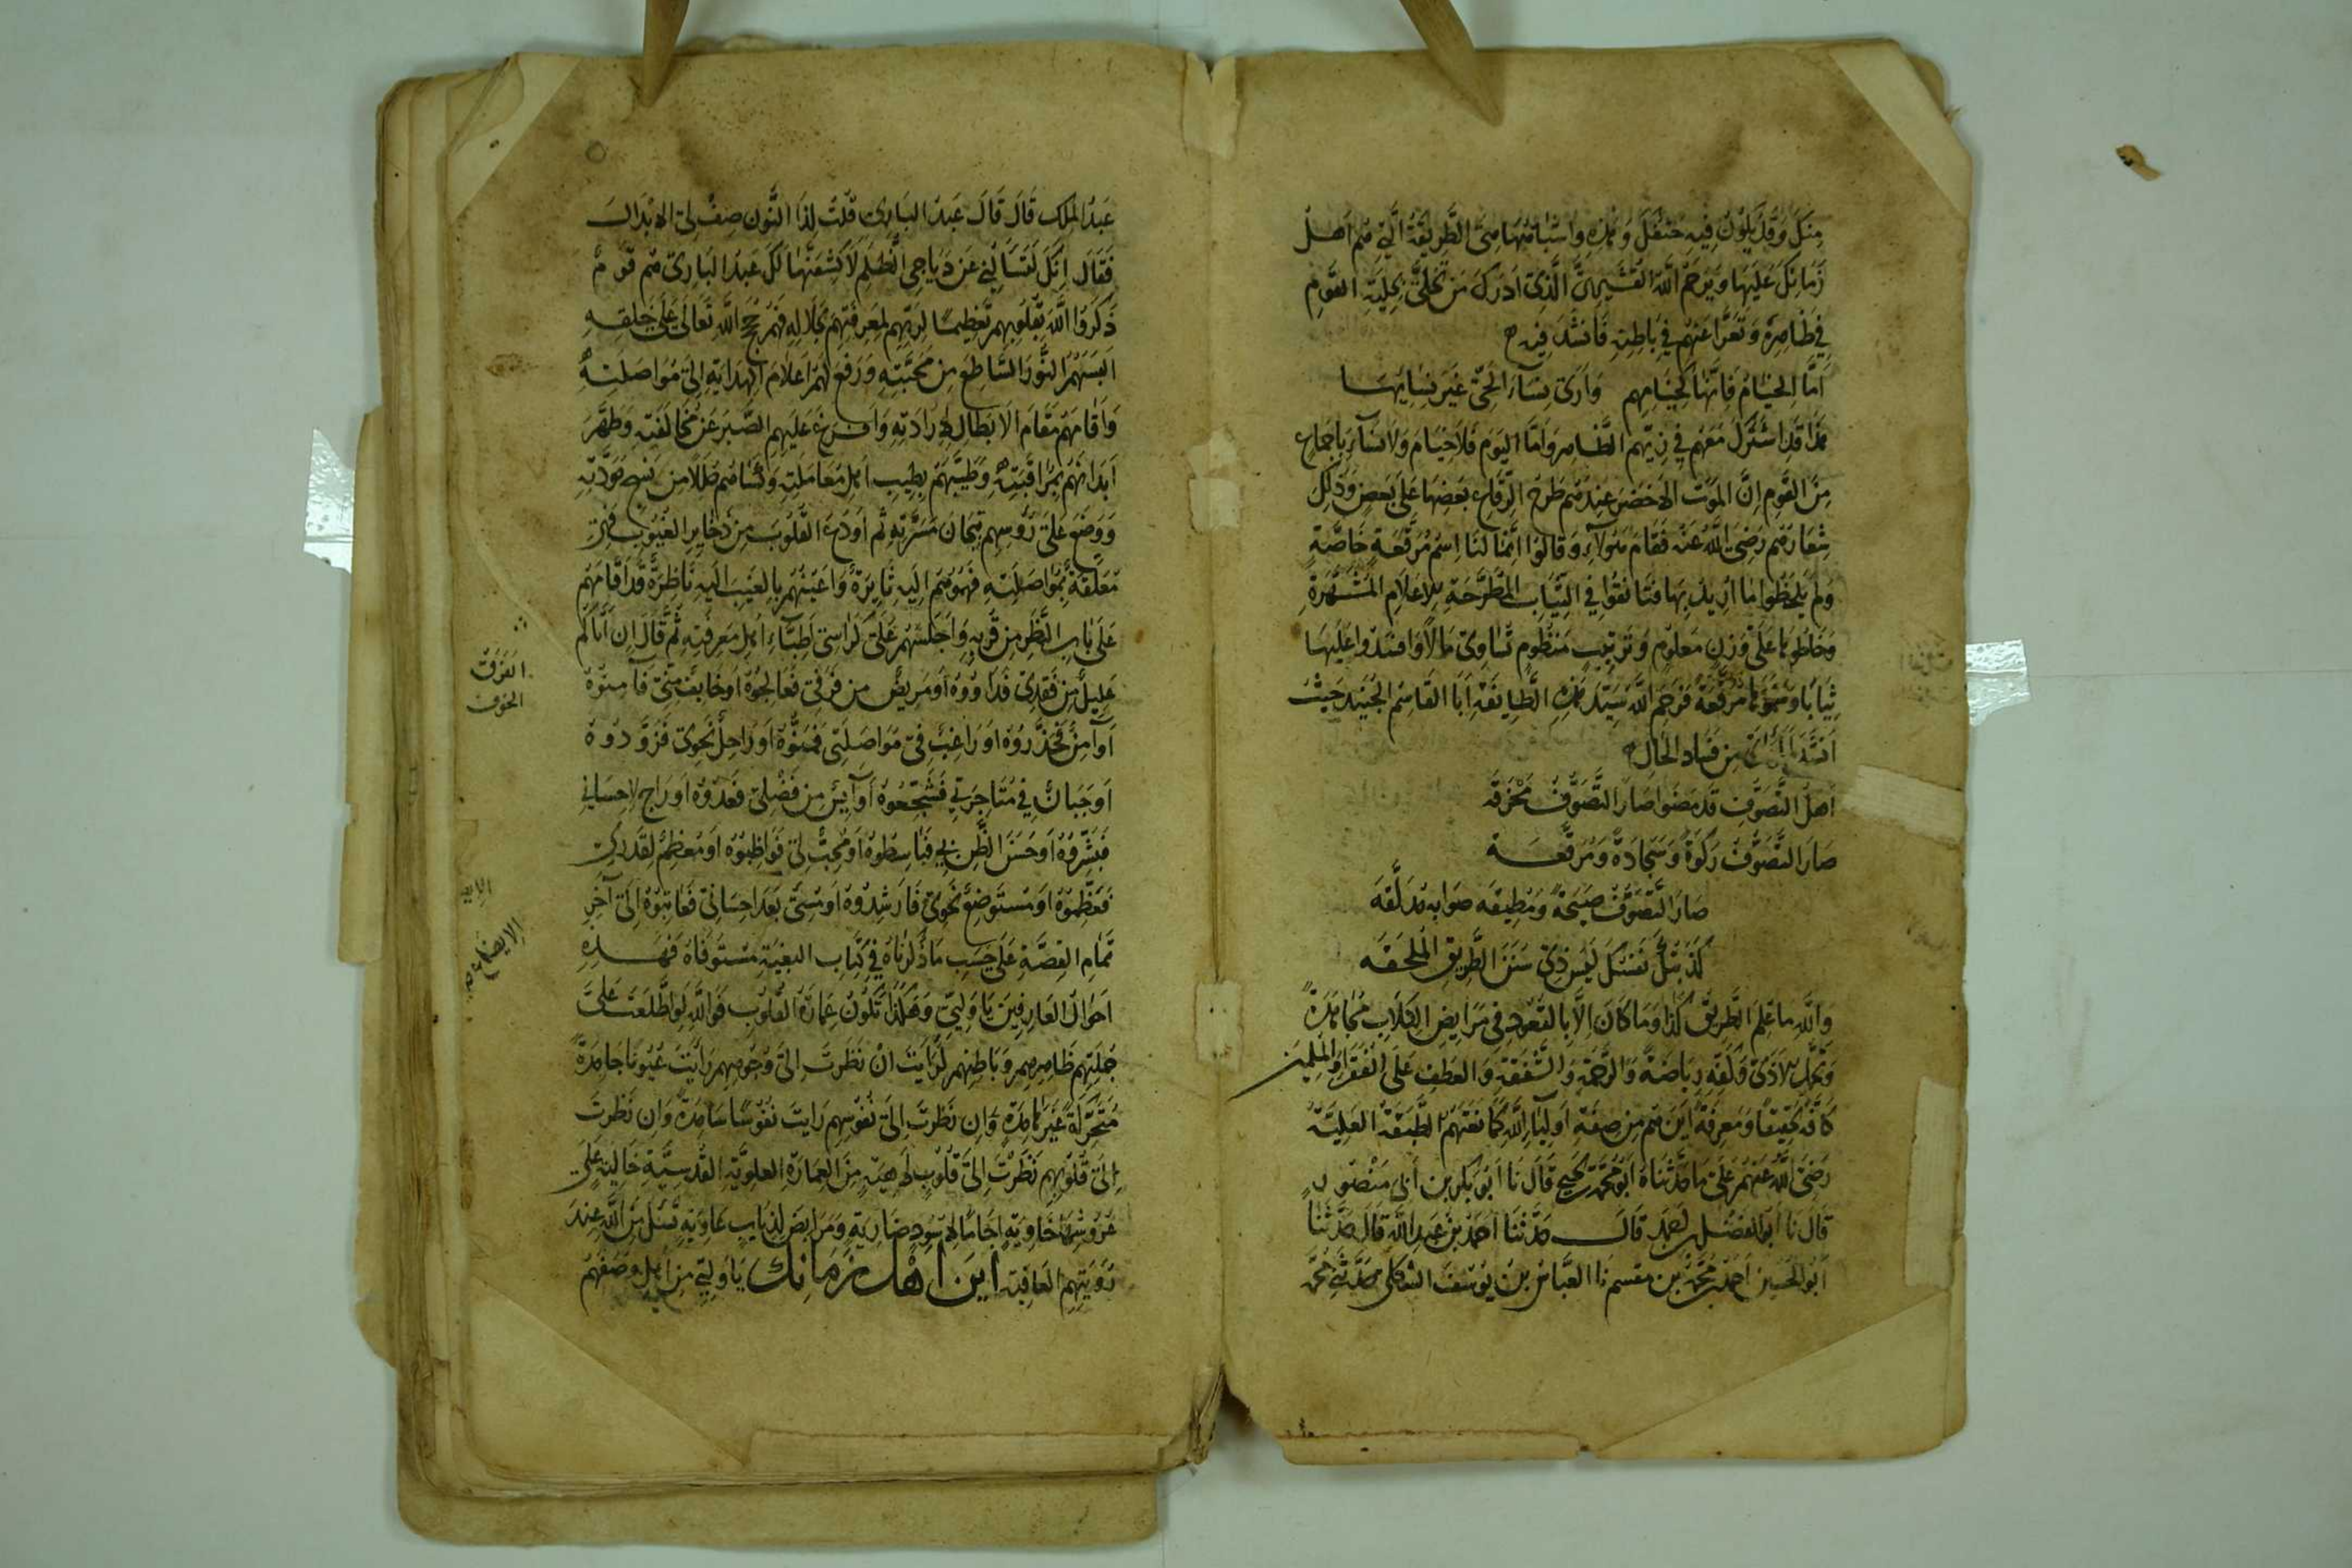 منك وقد يكون فيه حتفك وهذه واشباهها هي الطريقة التي هم اهل
زمانك عليها ويرحم الله القشيري الذي ادرك من تحلى بحلية القوم
في ظاهره وتعرا عنهم في باطنه فانشد فيه
اما الخيام فانها كخيامهم وارى نساء الحي غير نسايها
هذا قد اشترك معهم في زيهم الظاهر واما اليوم فلا خيام ولا نساء باجماع
من القوم ان الموت الاخضر عندهم طرح الرقاع بعضها على بعض وذلك
شعارهم رضي الله عنه فقام هولاء وقالوا انما لنا اسم مرقعة خاصة
ولم يلحظوا ما اريد بها فتانقوا في الثياب المطرحة للاعلام المشهرة
وخاطوها على وزن معلوم وترتيب منظوم تساوي مالا وافسدوا عليها
ثيابا وسموها مرقعة فرحم الله سيد هذه الطايفة ابا القاسم الجنيد حيث
انشد لما راى من فساد الحال
اهل التصوف قد مضوا صار التصوف مخرقه
صار التصوف ركوة وسجادة ومرقعه
صار التصوف صيحة ومطيقه صوابه مدلقه
كذبتك نفسك ليس ذي سنن الطريق الملحقه
والله ما علم الطريق كذا وما كان الا بالقعود في مرابض الكلاب مجاهدة
وتحمل الاذى وكفه رياضة والرحمة والشفقة والعطف على الفقرا والمسلمين
كافة تحقيقا ومعرفة اين هم من صفة اولياء الله كما نعتهم الطبقة العلية
رضي الله عنهم على ما حدثناه ابو محمد بن يحيى قال نا ابو بكر بن ابي منصور
قال نا ابو الفضل بن احمد قال حدثنا احمد بن عبد الله قال حدثنا
ابو الحسين احمد بن محمد بن مقسم نا العباس بن يوسف الشكلي حدثني محمد
عبد الملك قال قال عبد الباري قلت لذا النون صف لي الابدال
فقال انك لتسالني عن دياجي الظلم لاكشفنها لك عبد الباري هم قوم
ذكروا الله بقلوبهم تعظيما لربهم لمعرفتهم بجلاله فهم حجج الله تعالى على خلقه
البسهم النور الساطع من محبته ورفع لهم اعلام الهداية الى مواصلته
واقامهم مقام الابطال لارادته وافرغ عليهم الصبر عن مخالفته وطهر
ابدانهم بمراقبته وطيبهم بطيب اهل معاملته وكساهم حللا من نسج مودته
ووضع على روسهم تيجان مسرته ثم اودع القلوب من ذخاير الغيوب فهي
معلقة بمواصلته فهمومهم اليه ثايرة واعينهم بالغيب اليه ناظرة قد اقامهم
على باب النظر من قربه واجلسهم على كراسي اطباء اهل معرفته ثم قال ان اتاكم
عليل من فقدي فداووه او مريض من فرقتي فعالجوه او خايف مني فآمنوه
او آمن فحذروه او راغب في مواصلتي فمنوه او راحل نحوي فزودوه
او جبان في متاجرتي فشجعوه او آيس من فضلي فعدوه او راج لاحساني
فبشروه او حسن الظن بي فباسطوه او محب لي فواظبوه او معظم لقدري
فعظموه او مستوضع نحوي فارشدوه او مسي بعد احساني فعاتبوه الى آخر
تمام القصة على حسب ما ذكرناه في كتاب البغية مستوفاة فهذه
احوال العارفين يا وليي وهكذا تكون عمارة القلوب فوالله لو اطلعت على
جملتهم ظاهرهم وباطنهم لرايت ان نظرت الى وجوههم رايت عيونا جامدة
متحركة غير هامدة وان نظرت الى نفوسهم رايت نفوسا سامدة وان نظرت
الى قلوبهم نظرت الى قلوب لاهية من العمارة العلوية القدسية خالية على
عروشها خاوية اجاما لاسود ضارية ومرابض لذياب عاوية تسئل من الله عند
رويتهم العافية اين اهل زمانك يا وليي من اهل وصفهم
الفرق
الخوف